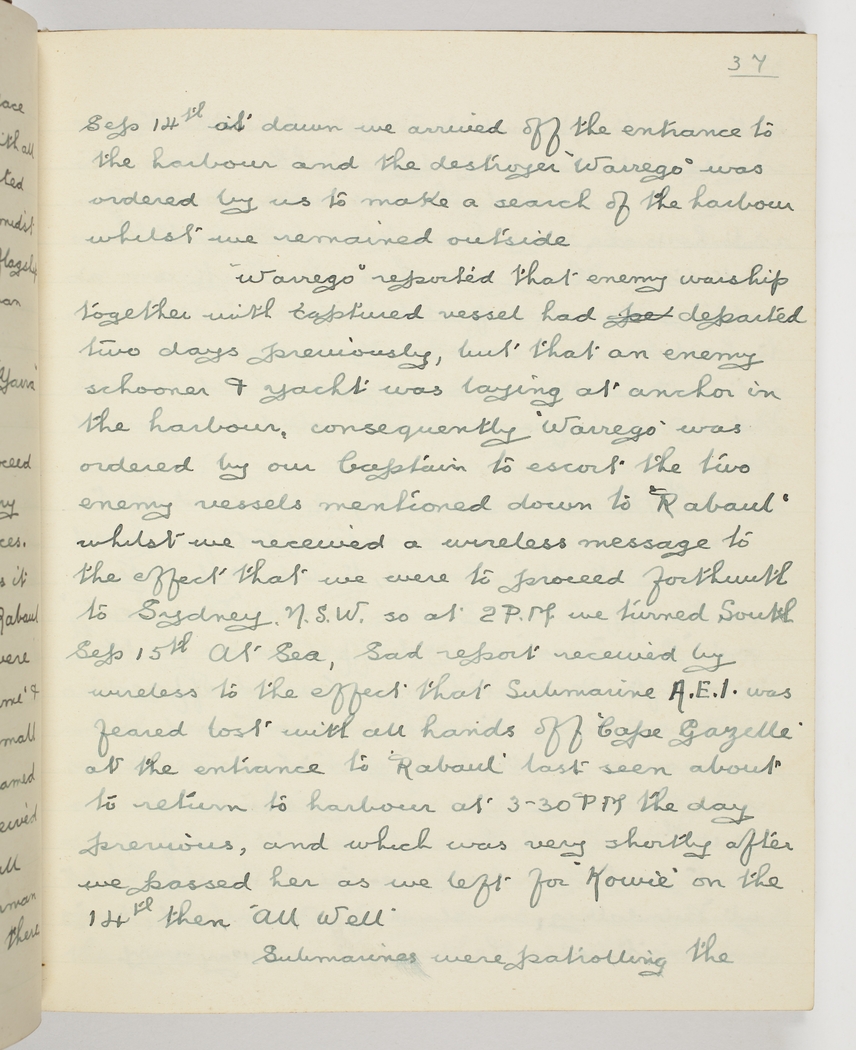 37
Sep 14th at dawn we arrived off the entrance to
the harbour and the destroyer "Warrego" was
ordered by us to make a search of the harbour
whilst we remained outside
"Warrego" reported that enemy warship
together with captured vessel had pe departed
two days previously, but that an enemy
schooner & yacht was laying at anchor in
the harbour, consequently 'Warrego' was
ordered by our Captain to escort the two
enemy vessels mentioned down to "Rabaul"
whilst we received a wireless message to
the effect that we were to proceed forthwith
to Sydney. N.S.W. so at 2 P.M. we turned South
Sep 15th At Sea, Sad report received by
wireless to the effect that Submarine A.E.1. was
feared lost with all hands off 'Cape Gazelle'
at the entrance to 'Rabaul' last seen about
to return to harbour at 3-30 PM the day
previous, and which was very shortly after
we passed her as we left for 'Kowie' on the
14th then 'All Well'
Submarines were patrolling the
ace
ith all
ted
midst
flagship
an
'Yarra'
ceed
ny
ces.
s it
Rabaul
were
me' &
mall
amed
ceived
all
rman
there